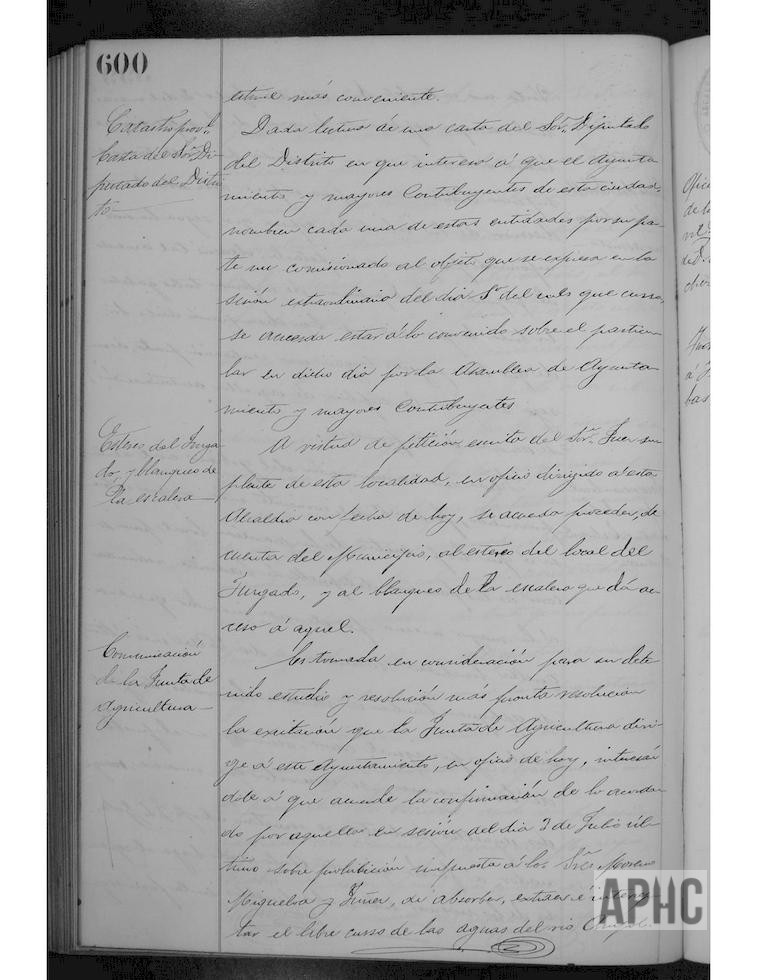 600
estime más conveniente.
Catastro prov.l
Carta del Sor. Di-
putado del Distri-
to
Dada lectura de una carta del Sor. Diputado
del Distrito en que interesa á que el Ayunta
miento y mayores Contribuyentes de esta ciudad,
nombren cada una de estas entidades por su par-
te un comisionado al objeto que se expresa en la
sesión extraordinaria del dia 5 del mes que cursa,
se acuerda estar á lo convenido sobre el particu-
lar en dicho dia por la Asamblea de Ayunta-
miento y mayores Contribuyentes
Estereo del Juzga
do, y blanqueo de
la escalera
A virtud de petición escrita del Sor. Juez su
plente de esta localidad, en oficio dirigido á esta
Alcaldia con fecha de hoy, se acuerda proceder, de
cuenta del Municipio, al estereo del local del
Juzgado, y al blanqueo de la escalera que dá ac-
ceso á aquel.
Comunicación
de la Junta de
Agricultura
Es tomada en consideración para su dete-
nido estudio y resolución más pronta resolución
la exitación que la Junta de Agricultura diri-
ge á este Ayuntamiento, en oficio de hoy, interesán
dole á que acuerde la confirmación de lo acorda-
do por aquella en sesión del dia 3 de Julio úl-
timo sobre prohibición impuesta á los Sres. Moreno
Miguelva y Fuñer, de absorber, extraer é interep-
tar el libre curso de las aguas del rio
Ofici
de la
á
bas
APHC